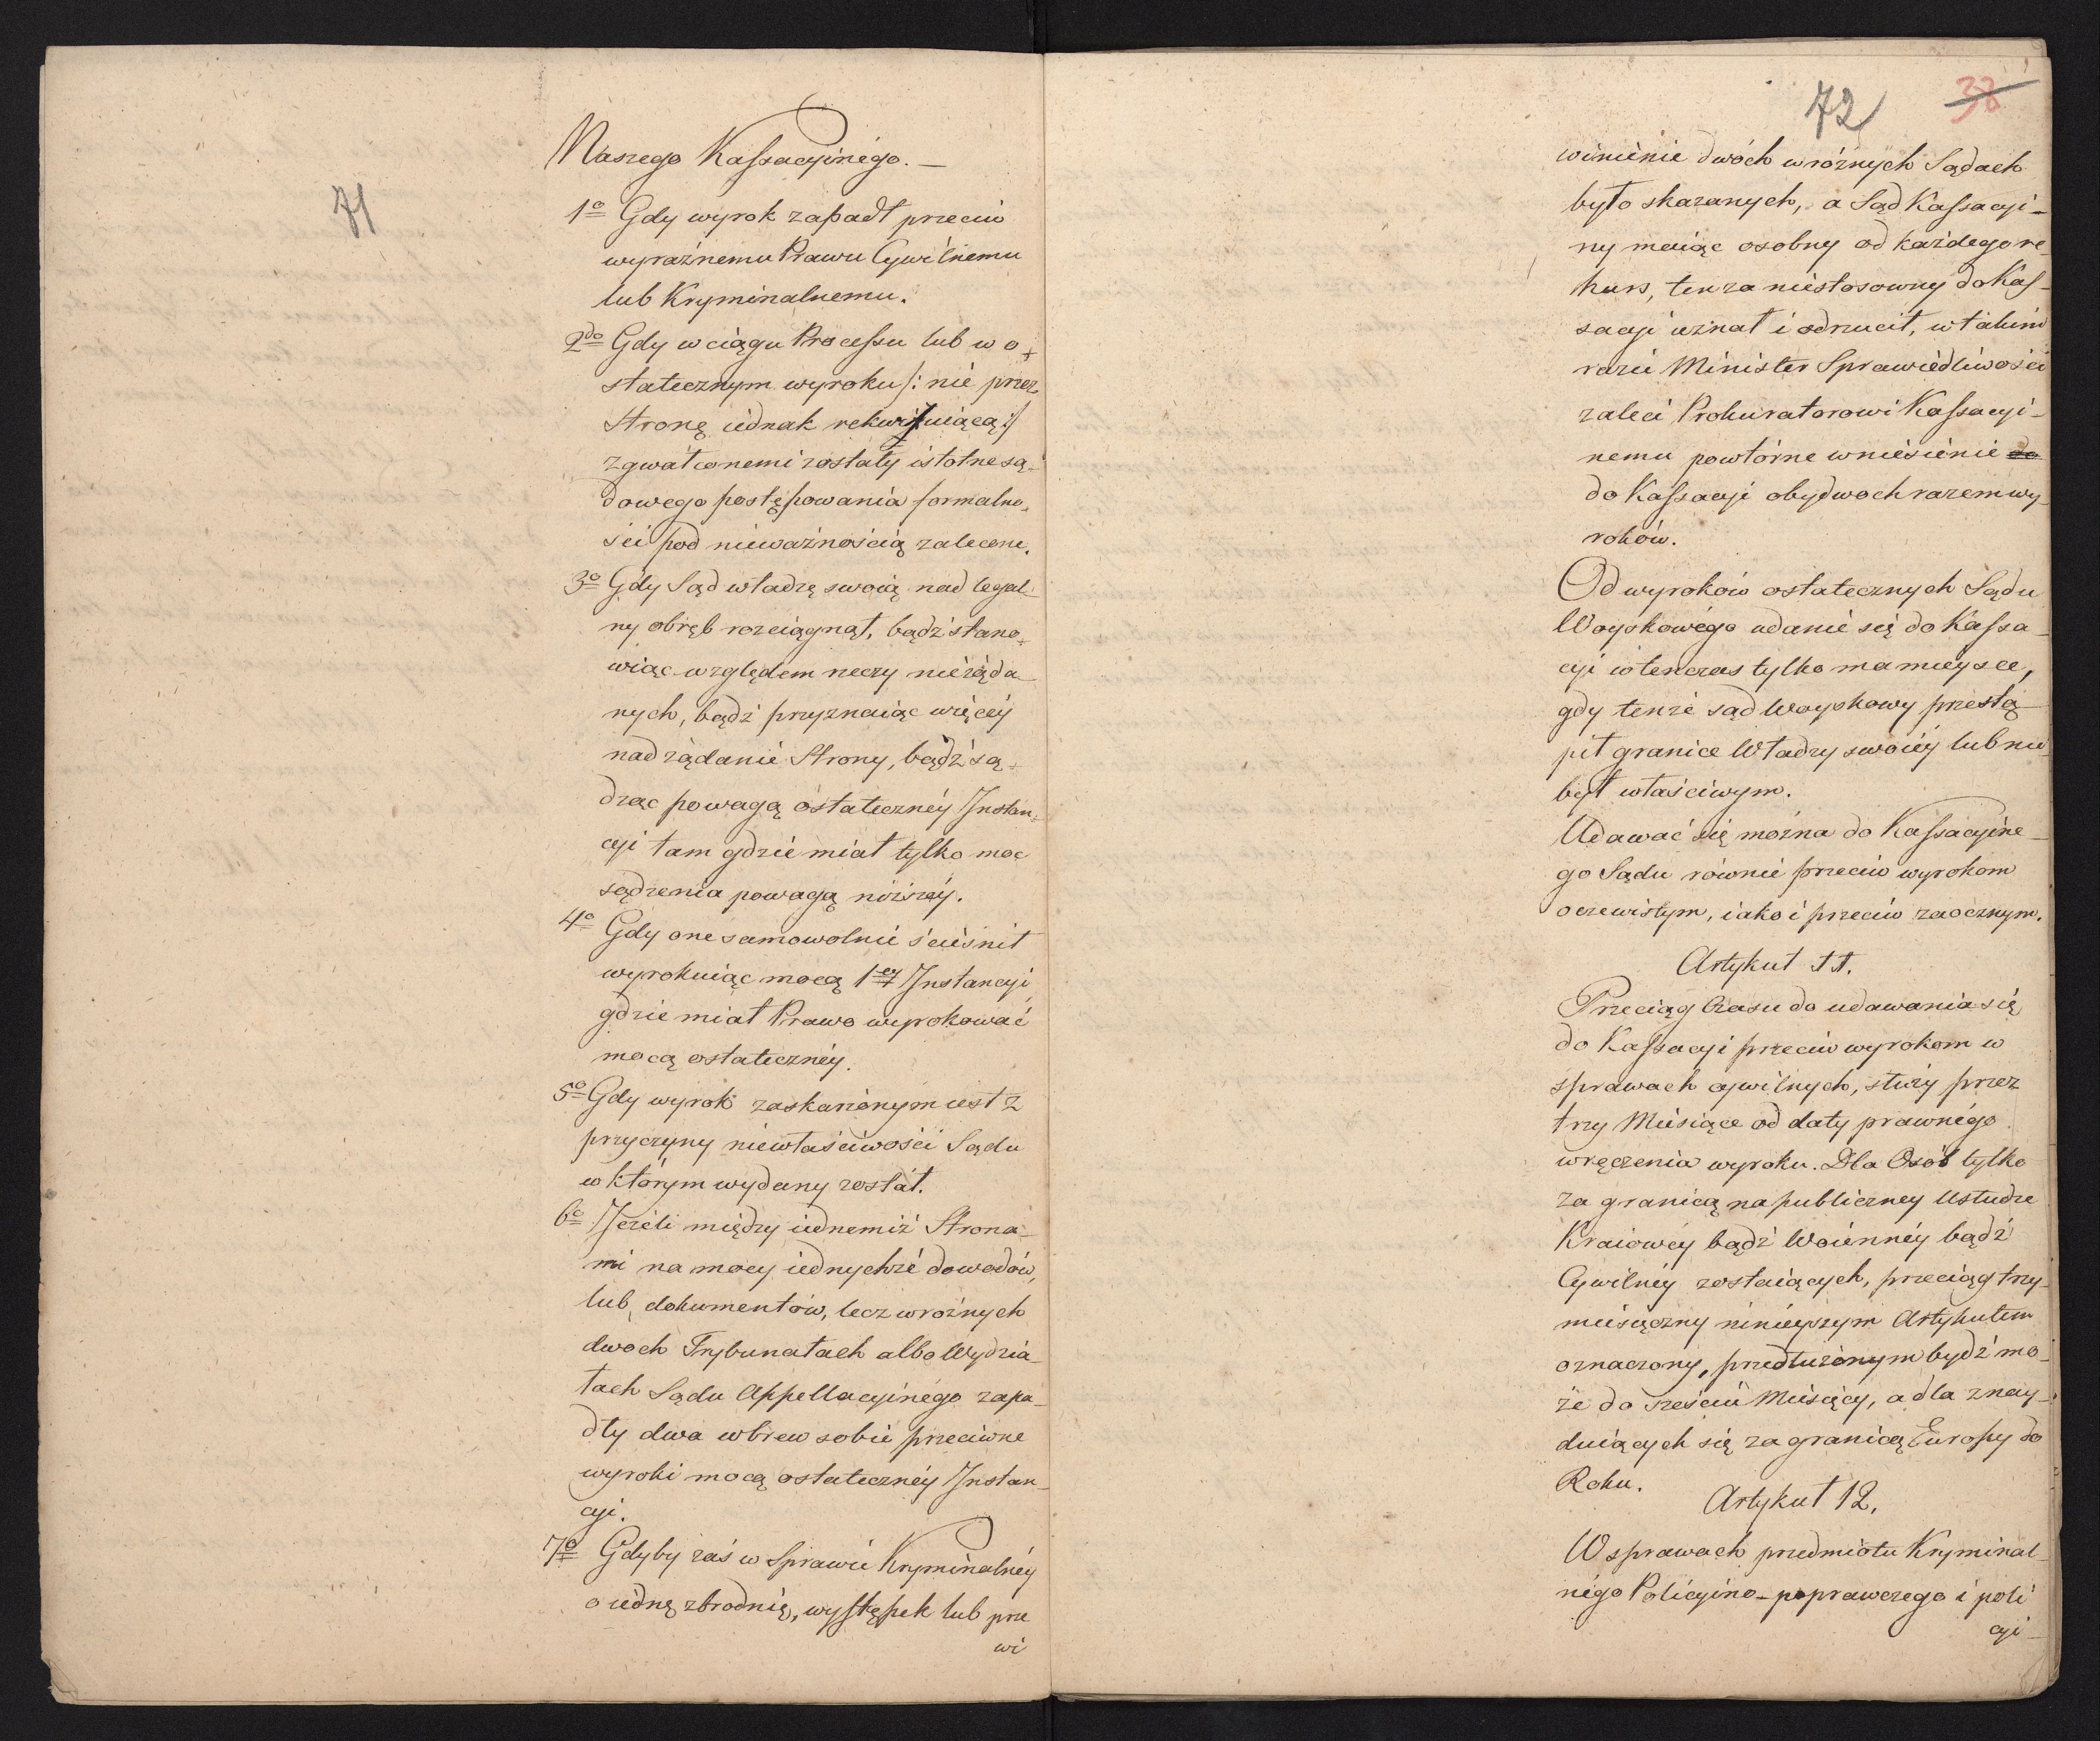 71
Naszego Kassacyinégo. —
1o Gdy wyrok zapadł przeciw
wyraźnemu Prawu Cywilnemu
lub Kryminalnemu.
2do Gdy w ciągu Processu lub w o-
statecznym wyroku /: nie przez
Stronę iednak rekwiruiącą :/
zgwałconemi zostały istotne są-
dowego postępowania formalno-
ści pod nieważnością zalecone.
3o Gdy Sąd władzę swoią nad legal-
ny obręb rozciągnął, bądź stano-
wiąc względem rzeczy nieżąda-
nych, bądź przyznaiąc więcéy
nad żądanie Strony, bądź są-
dząc powagą ostatecznéy Instan-
cyi tam gdzie miał tylko moc
sądzenia powagą niższéy.
4o Gdy one samowolnie ścieśnił
wyrokuiąc mocą 1éy Instancyi
gdzie miał Prawo wyrokować
mocą ostatecznéy.
5o Gdy wyrok zaskarżonym iest z
przyczyny niewłaściwości Sądu
w którym wydany został.
6o Jeżeli między iednemiż Strona-
mi na mocy iednychże dowodów,
lub dokumentów, lecz w różnych
dwoch Trybunałach albo Wydzia-
łach Sądu Appellacyinégo zapa-
dły dwa wbrew sobie przeciwne
wyroki mocą ostatecznéy Instan-
cyi.
7o Gdyby zaś w Sprawie Kryminalnéy
o iednę zbrodnię, występek lub prze
wi
72 38
winienie dwóch w różnych Sądach
było skazanych, a Sąd Kassacyi-
ny maiąc osobny od każdego re-
kurs, ten za niestosowny do Kas-
sacyi uznał i odrzucił, w takim
razie Minister Sprawiedliwości
zaleci Prokuratorowi Kassacyi-
nemu powtórne wniesienie do
do Kassacyi obydwoch razem wy-
roków.
Od wyroków ostatecznych Sądu
Woyskowégo udanie się do Kassa-
cyi wtenczas tylko ma mieysce,
gdy tenże sąd Woyskowy przestą-
pił granice Władzy swoiéy lub nie
był właściwym.
Udawać się można do Kassacyine-
go Sądu równie przeciw wyrokom
oczewistym, iako i przeciw zaocznym.
Artykuł 11.
Przeciąg Czasu do udawania się
do Kassacyi przeciw wyrokom w
sprawach cywilnych, służy przez
trzy Miesiące od daty prawnégo
wręczenia wyroku. Dla Osób tylko
za granicą na publiczney usłudze
Kraiowéy bądź Woiennéy bądź
Cywilnéy zostaiących, przeciąg trzy-
miesięczny ninieyszym Artykułem
oznaczony, przedłużonym bydź mo-
że do sześciu Miesięcy, a dla znay-
duiących się za granicą Europy do
Roku.
Artykuł 12.
W sprawach przedmiotu Kryminal-
négo Policyino-poprawczego i poli
cyi-